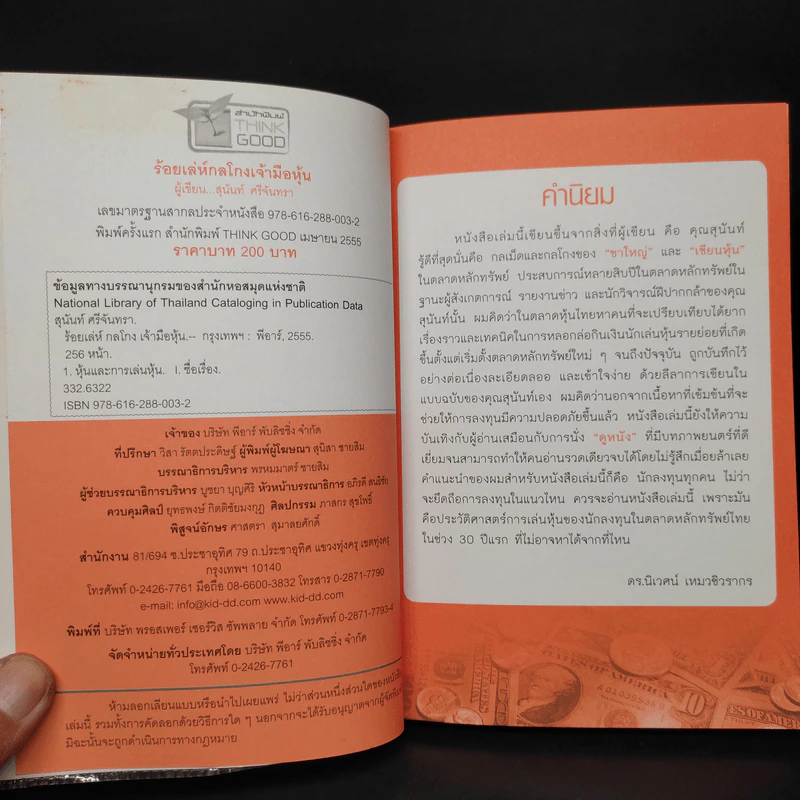 สำนักพิมพ์
THINK
GOOD
ร้อยเล่ห์กลโกงเจ้ามือหุ้น
ผู้เขียน...สุนันท์ ศรีจันทรา
เลขมาตรฐานสากลประจำหนังสือ 978-616-288-003-2
พิมพ์ครั้งแรก สำนักพิมพ์ THINK GOOD เมษายน 2555
ราคาบาท 200 บาท
ข้อมูลทางบรรณานุกรมของสำนักหอสมุดแห่งชาติ
National Library of Thailand Cataloging in Publication Data
สุนันท์ ศรีจันทรา.
ร้อยเล่ห์ กลโกง เจ้ามือหุ้น.-- กรุงเทพฯ : พีอาร์, 2555.
256 หน้า.
1. หุ้นและการเล่นหุ้น. I. ชื่อเรื่อง.
332.6322
ISBN 978-616-288-003-2
เจ้าของ บริษัท พีอาร์ พับลิชชิ่ง จำกัด
ที่ปรึกษา วิสา รัตตประดิษฐ์ ผู้พิมพ์ผู้โฆษณา สุนิสา ชายสิม
บรรณาธิการบริหาร พรหมมาตร์ ชายสิม
ผู้ช่วยบรรณาธิการบริหาร บูชยา บุญศิริ หัวหน้าบรรณาธิการ อภิรดี สนธิชัย
ควบคุมศิลป์ ยุทธพงษ์ กิตติชัยมงกุฎ ศิลปกรรม ภาสกร สุขโพธิ์
พิสูจน์อักษร ศาสตรา สุมาลยศักดิ์
สำนักงาน 81/694 ซ.ประชาอุทิศ 79 ถ.ประชาอุทิศ แขวงทุ่งครุ เขตทุ่งครุ
กรุงเทพฯ 10140
โทรศัพท์ 0-2426-7761 มือถือ 08-6600-3832 โทรสาร 0-2871-7790
e-mail: info@kid-dd.com www.kid-dd.com
พิมพ์ที่ บริษัท พรอสเพอร์ เซอร์วิส ซัพพลาย จำกัด โทรศัพท์ 0-2871-7793-4
จัดจำหน่ายทั่วประเทศโดย บริษัท พีอาร์ พับลิชชิ่ง จำกัด
โทรศัพท์ 0-2426-7761
ห้ามลอกเลียนแบบหรือนำไปเผยแพร่ ไม่ว่าส่วนหนึ่งส่วนใดของหนังสือ
เล่มนี้ รวมทั้งการคัดลอกด้วยวิธีการใด ๆ นอกจากจะได้รับอนุญาตจากผู้จัดพิมพ์
มิฉะนั้นจะถูกดำเนินการทางกฎหมาย
คำนิยม
หนังสือเล่มนี้เขียนขึ้นจากสิ่งที่ผู้เขียน คือ คุณสุนันท์
รู้ดีที่สุดนั่นคือ กลเม็ดและกลโกงของ “ขาใหญ่” และ “เซียนหุ้น”
ในตลาดหลักทรัพย์ ประสบการณ์หลายสิบปีในตลาดหลักทรัพย์ใน
ฐานะผู้สังเกตการณ์ รายงานข่าว และนักวิจารณ์ฝีปากกล้าของคุณ
สุนันท์นั้น ผมคิดว่าในตลาดหุ้นไทยหาคนที่จะเปรียบเทียบได้ยาก
เรื่องราวและเทคนิคในการหลอกล่อกินเงินนักเล่นหุ้นรายย่อยที่เกิด
ขึ้นตั้งแต่เริ่มตั้งตลาดหลักทรัพย์ใหม่ ๆ จนถึงปัจจุบัน ถูกบันทึกไว้
อย่างต่อเนื่องละเอียดลออ และเข้าใจง่าย ด้วยลีลาการเขียนใน
แบบฉบับของคุณสุนันท์เอง ผมคิดว่านอกจากเนื้อหาที่เข้มข้นที่จะ
ช่วยให้การลงทุนมีความปลอดภัยขึ้นแล้ว หนังสือเล่มนี้ยังให้ความ
บันเทิงกับผู้อ่านเสมือนกับการนั่ง “ดูหนัง” ที่มีบทภาพยนตร์ที่ดี
เยี่ยมจนสามารถทำให้คนอ่านรวดเดียวจบได้โดยไม่รู้สึกเมื่อยล้าเลย
คำแนะนำของผมสำหรับหนังสือเล่มนี้ก็คือ นักลงทุนทุกคน ไม่ว่า
จะยึดถือการลงทุนในแนวไหน ควรจะอ่านหนังสือเล่มนี้ เพราะมัน
คือประวัติศาสตร์การเล่นหุ้นของนักลงทุนในตลาดหลักทรัพย์ไทย
ในช่วง 30 ปีแรก ที่ไม่อาจหาได้จากที่ไหน
ดร.นิเวศน์ เหมวชิรวรากร